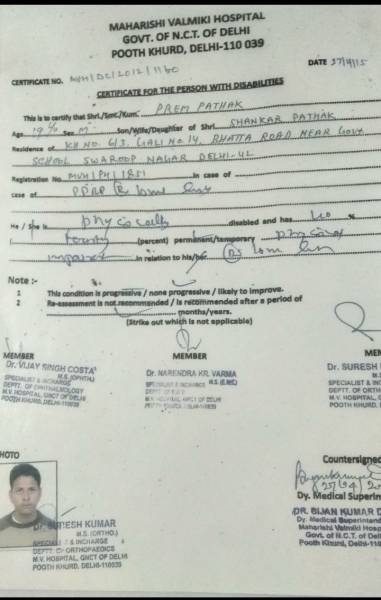 MAHARISHI VALMIKI HOSPITAL
GOVT. OF N.C.T. OF DELHI
POOTH KHURD, DELHI-110 039
CERTIFICATE NO. MVH/DC/2012/1160 DATE 27/4/15
CERTIFICATE FOR THE PERSON WITH DISABILITIES
This is to certify that Shri./Smt./Kum. PREM PATHAK
Age 19 Y Sex M Son/Wife/Daughter of Shri. SHANKAR PATHAK
Residence of KH NO. 6/3, GALI NO. 14, BHATTA ROAD NEAR GOVT.
SCHOOL SWAROOP NAGAR DELHI-42
Registration No. MVH/PH/1851 in case of
case of PPRP (R) lower limb
He / She is physically disabled and has 40 %
Fourty (percent) permanent/temporary physical
impaired in relation to his/her (R) lower limb
Note :-
1 This condition is progressive / none progressive / likely to improve.
2 Re-assessment is not recommended / is recommended after a period of
months/years.
(Strike out which is not applicable)
MEMBER MEMBER MEM
Dr. VIJAY SINGH COSTA
M.S. (OPHTH.)
SPECIALIST & INCHARGE
DEPTT. OF OPHTHALMOLOGY
M.V. HOSPITAL, GNCT OF DELHI
POOTH KHURD, DELHI-110039
Dr. NARENDRA KR. VARMA
M.S. (E.N.T.)
SPECIALIST & INCHARGE
DEPTT. OF E.N.T.
M.V. HOSPITAL, GNCT OF DELHI
POOTH KHURD, DELHI-110039
Dr. SURESH
M
SPECIALIST & IN
DEPTT. OF ORTH
M.V. HOSPITAL, G
POOTH KHURD, D
HOTO
Dr. SURESH KUMAR
M.S. (ORTHO.)
SPECIALIST & INCHARGE
DEPTT. OF ORTHOPAEDICS
M.V. HOSPITAL, GNCT OF DELHI
POOTH KHURD, DELHI-110039
Countersigned
27/04/20
Dy. Medical Superin
DR. BIJAN KUMAR D
Dy. Medical Superintend
Maharishi Valmiki Hosp
Govt. of N.C.T. of Del
Pooth Khurd, Delhi-110